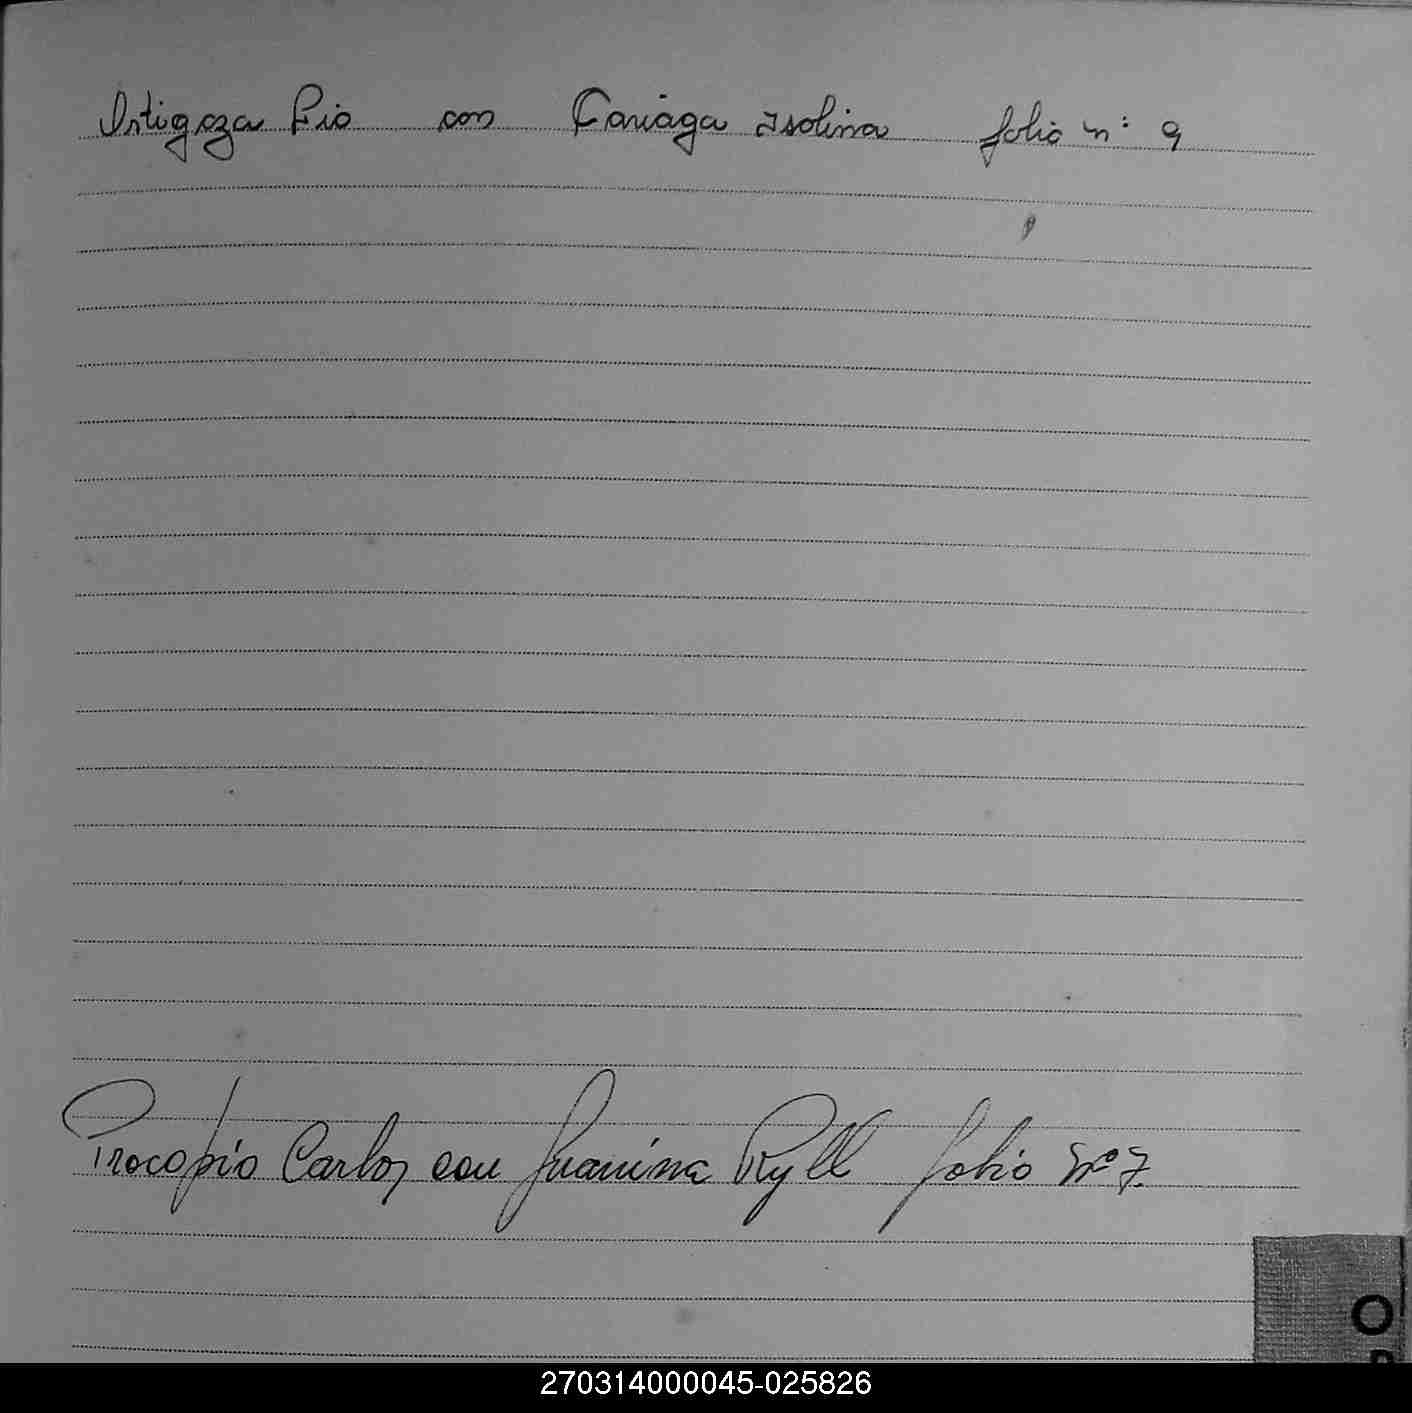 Ortigoza Pio con Cariaga Isolina folio nº 9
Procopio Carlos con Juanina Ryll folio Nº 7.
O
P
270314000045-025826